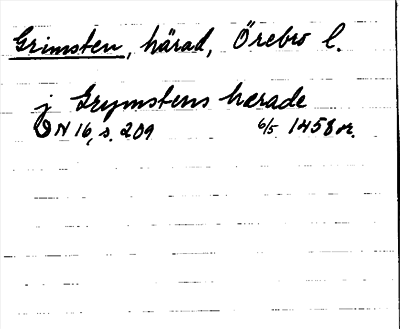 Grimsten, härad, Örebro l.
j Grymstens hærade
DN 16, s. 209 6/5 1458 or.